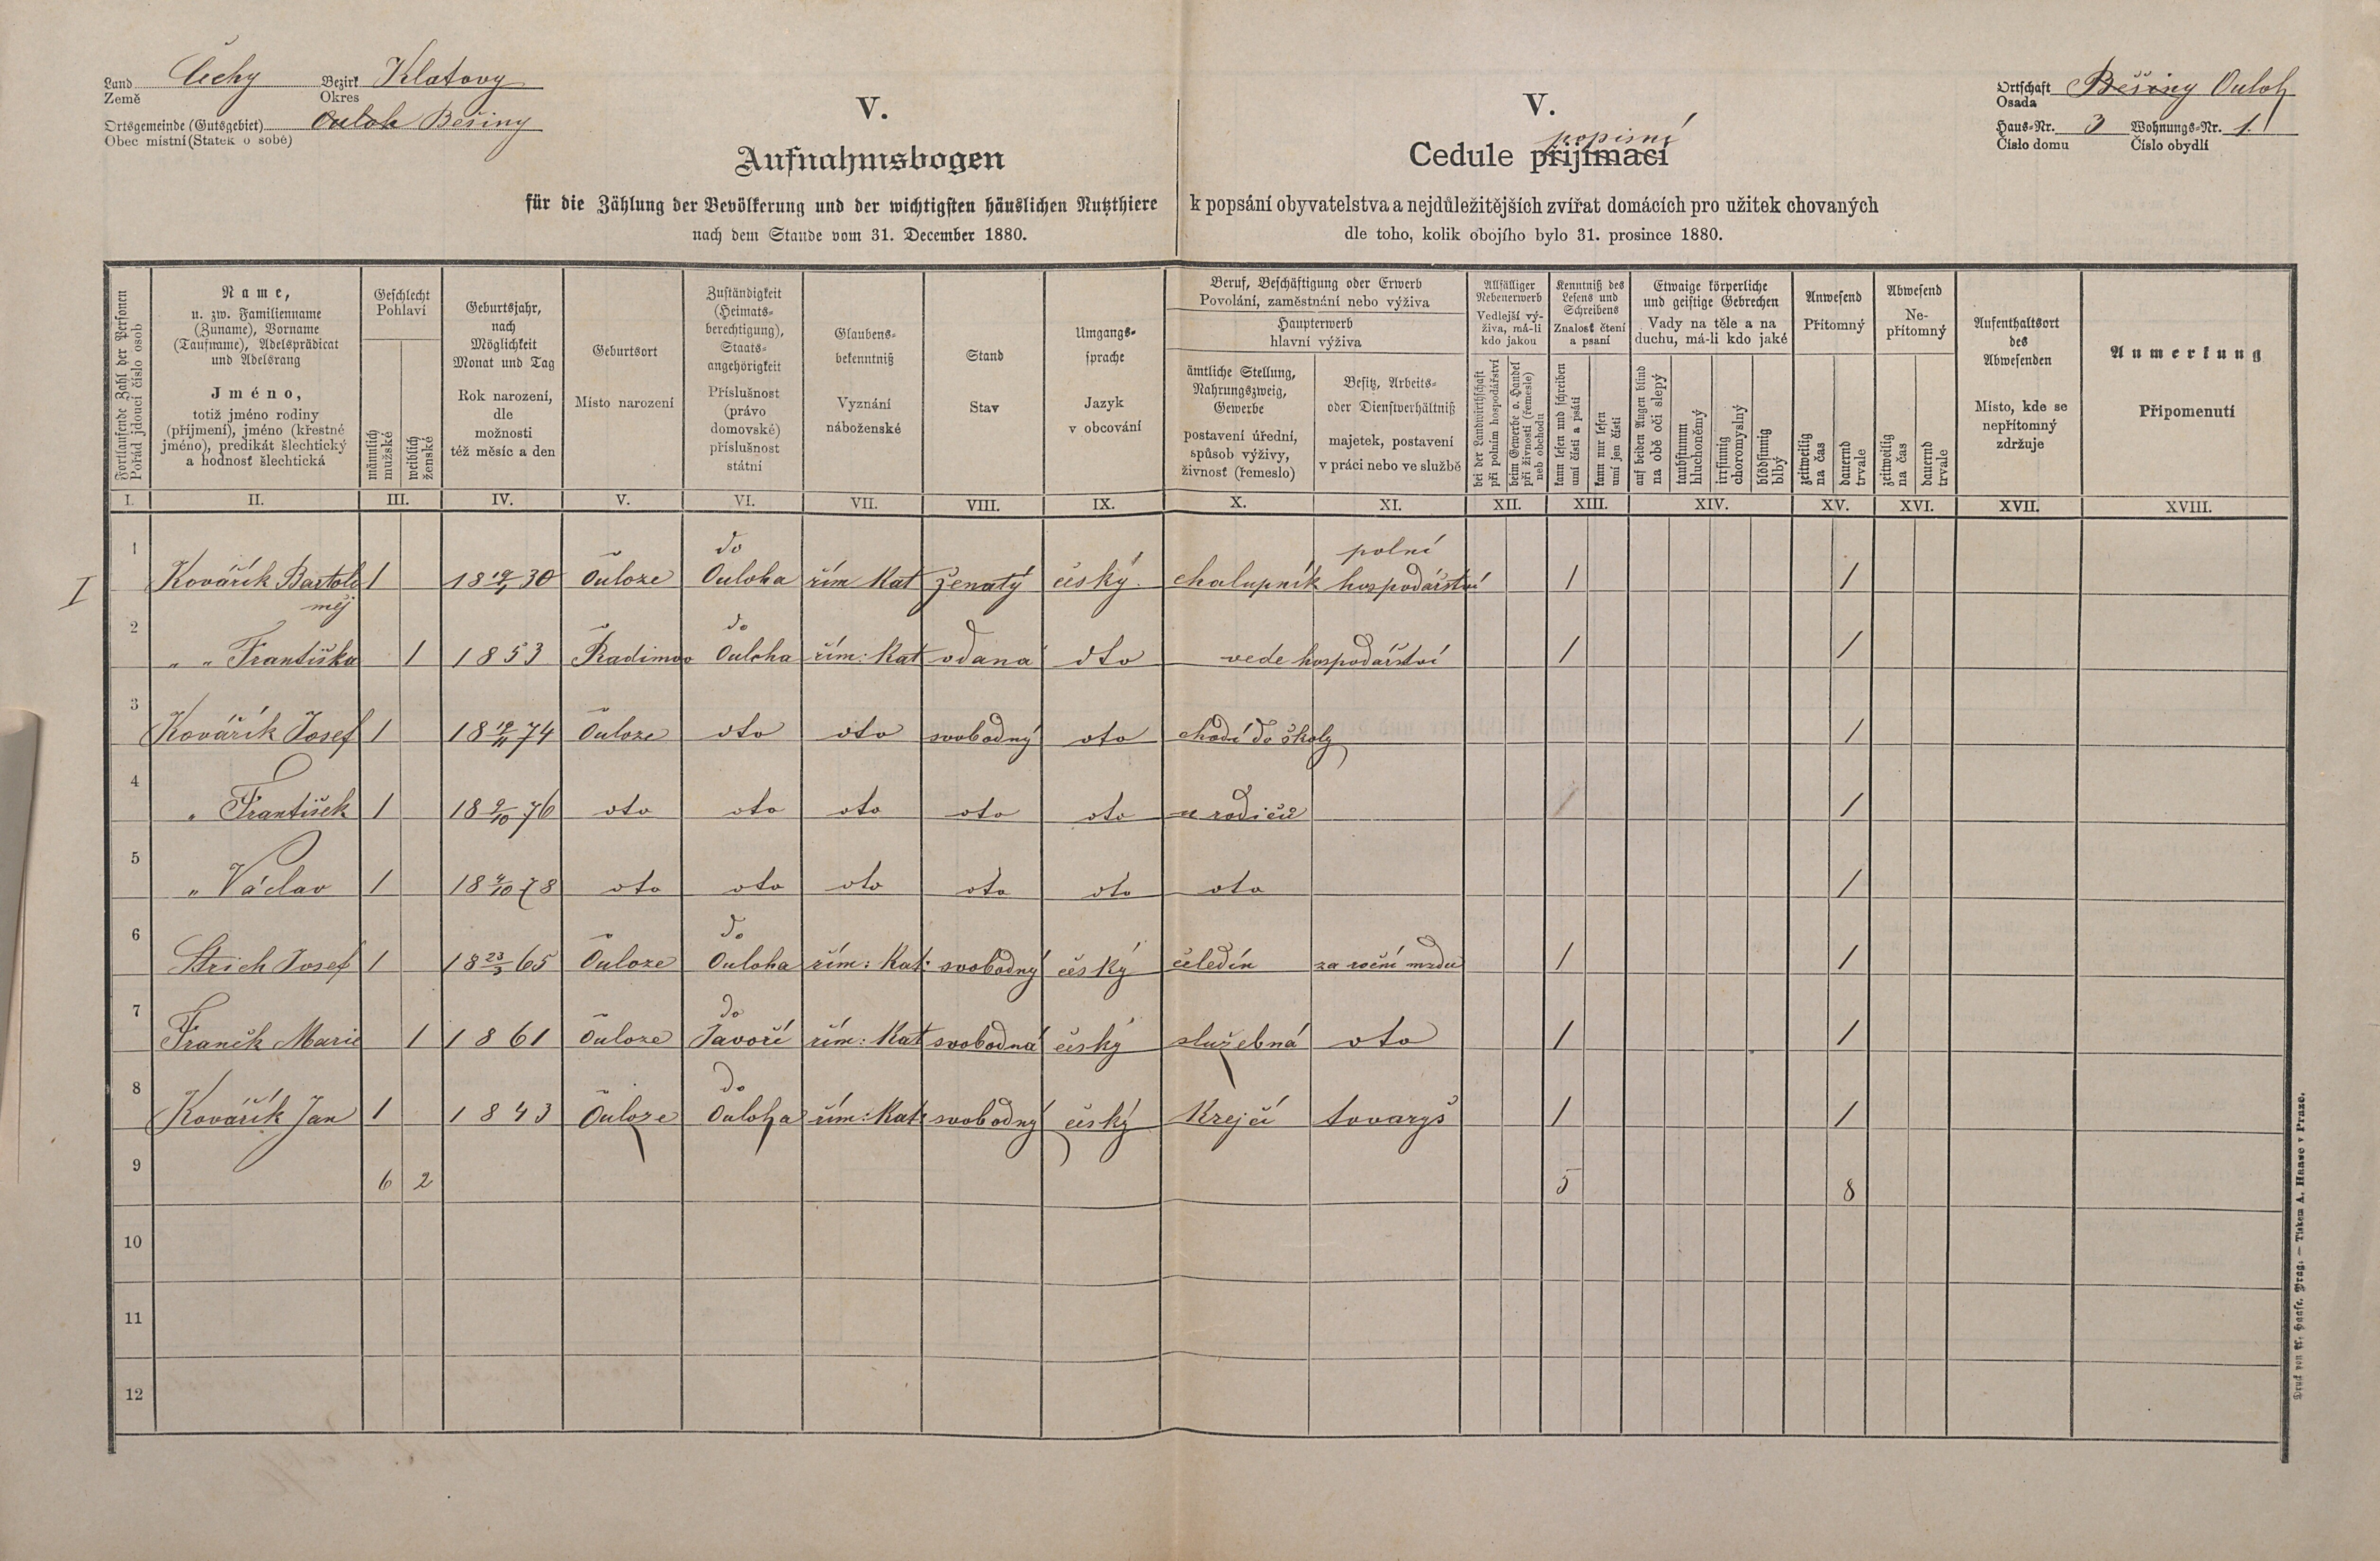 Land Čechy Bezirk Klatovy
Země Okres
Ortsgemeinde (Gutsgebiet) Ouloh Bešiny
Obec místní (Statek o sobě)
V.
Aufnahmsbogen
für die Zählung der Bevölkerung und der wichtigsten häuslichen Nutzthiere
nach dem Stande vom 31. December 1880.
V.
popisní
Cedule přijímací
k popsání obyvatelstva a nejdůležitějších zvířat domácích pro užitek chovaných
dle toho, kolik obojího bylo 31. prosince 1880.
Ortschaft Běšiny Ouloh
Osada
Haus-Nr. 3 Wohnungs-Nr. 1.
Číslo domu Číslo obydlí
Fortlaufende Zahl der Personen
Pořád jdoucí číslo osob
Name,
u. zw. Familienname
(Zuname), Vorname
(Taufname), Adelsprädicat
und Adelsrang
Jméno,
totiž jméno rodiny
(příjmení), jméno (křestné
jméno), predikát šlechtický
a hodnosť šlechtická
Geschlecht
Pohlaví
männlich
mužské
weiblich
ženské
Geburtsjahr,
nach
Möglichkeit
Monat und Tag
Rok narození,
dle
možnosti
též měsíc a den
Geburtsort
Místo narození
Zuständigkeit
(Heimats-
berechtigung),
Staats-
angehörigkeit
Příslušnost
(právo
domovské)
příslušnost
státní
Glaubens-
bekenntniß
Vyznání
náboženské
Stand
Stav
Umgangs-
sprache
Jazyk
v obcování
Beruf, Beschäftigung oder Erwerb
Povolání, zaměstnání nebo výživa
Haupterwerb
hlavní výživa
ämtliche Stellung,
Nahrungszweig,
Gewerbe
postavení úřední,
spůsob výživy,
živnosť (řemeslo)
Besitz, Arbeits-
oder Dienstverhältniß
majetek, postavení
v práci nebo ve službě
Allfälliger
Nebenerwerb
Vedlejší vý-
živa, má-li
kdo jakou
bei der Landwirthschaft
při polním hospodářství
beim Gewerbe o. Handel
při živnosti (řemesle)
neb obchodu
Kenntniß des
Lesens und
Schreibens
Znalosť čtení
a psaní
kann lesen und schreiben
umí čísti a psáti
kann nur lesen
umí jen čísti
Etwaige körperliche
und geistige Gebrechen
Vady na těle a na
duchu, má-li kdo jaké
auf beiden Augen blind
na obě oči slepý
taubstumm
hluchoněmý
irrsinnig
choromyslný
blödsinnig
blbý
Anwesend
Přítomný
zeitweilig
na čas
dauernd
trvale
Abwesend
Ne-
přítomný
zeitweilig
na čas
dauernd
trvale
Aufenthaltsort
des
Abwesenden
Místo, kde se
nepřítomný
zdržuje
Anmerkung
Připomenutí
I. II. III. IV. V. VI. VII. VIII. IX. X. XI. XII. XIII. XIV. XV. XVI. XVII. XVIII.
I
1 Kovářík Bartolo 1 18 30 Ouloze do Ouloha řím Kat ženatý český. chalupník polní hospodářství 1 1
měj
2 " " Františka 1 1853 Radimov do Ouloha řím: Kat vdaná dto vede hospodářství 1 1
3 Kovářík Josef 1 18 19/11 74 Ouloze dto dto svobodný dto chodí do školy 1
4 " František 1 18 9/10 76 dto dto dto dto dto u rodičů 1
5 " Václav 1 18 4/10 78 dto dto dto dto dto dto 1
6 Strich Josef 1 18 23/3 65 Ouloze do Ouloha řím: Kat: svobodný český čeledín za roční mzdu 1 1
7 Franěk Marie 1 1861 Ouloze do Javoří řím: Kat svobodná český služebná dto 1 1
8 Kovářík Jan 1 1843 Ouloze do Ouloha řím: Kat: svobodný český Krejčí tovaryš 1 1
9 6 2 5 8
10
11
12
Druck von A. Haase, Prag. — Tiskem A. Haase v Praze.